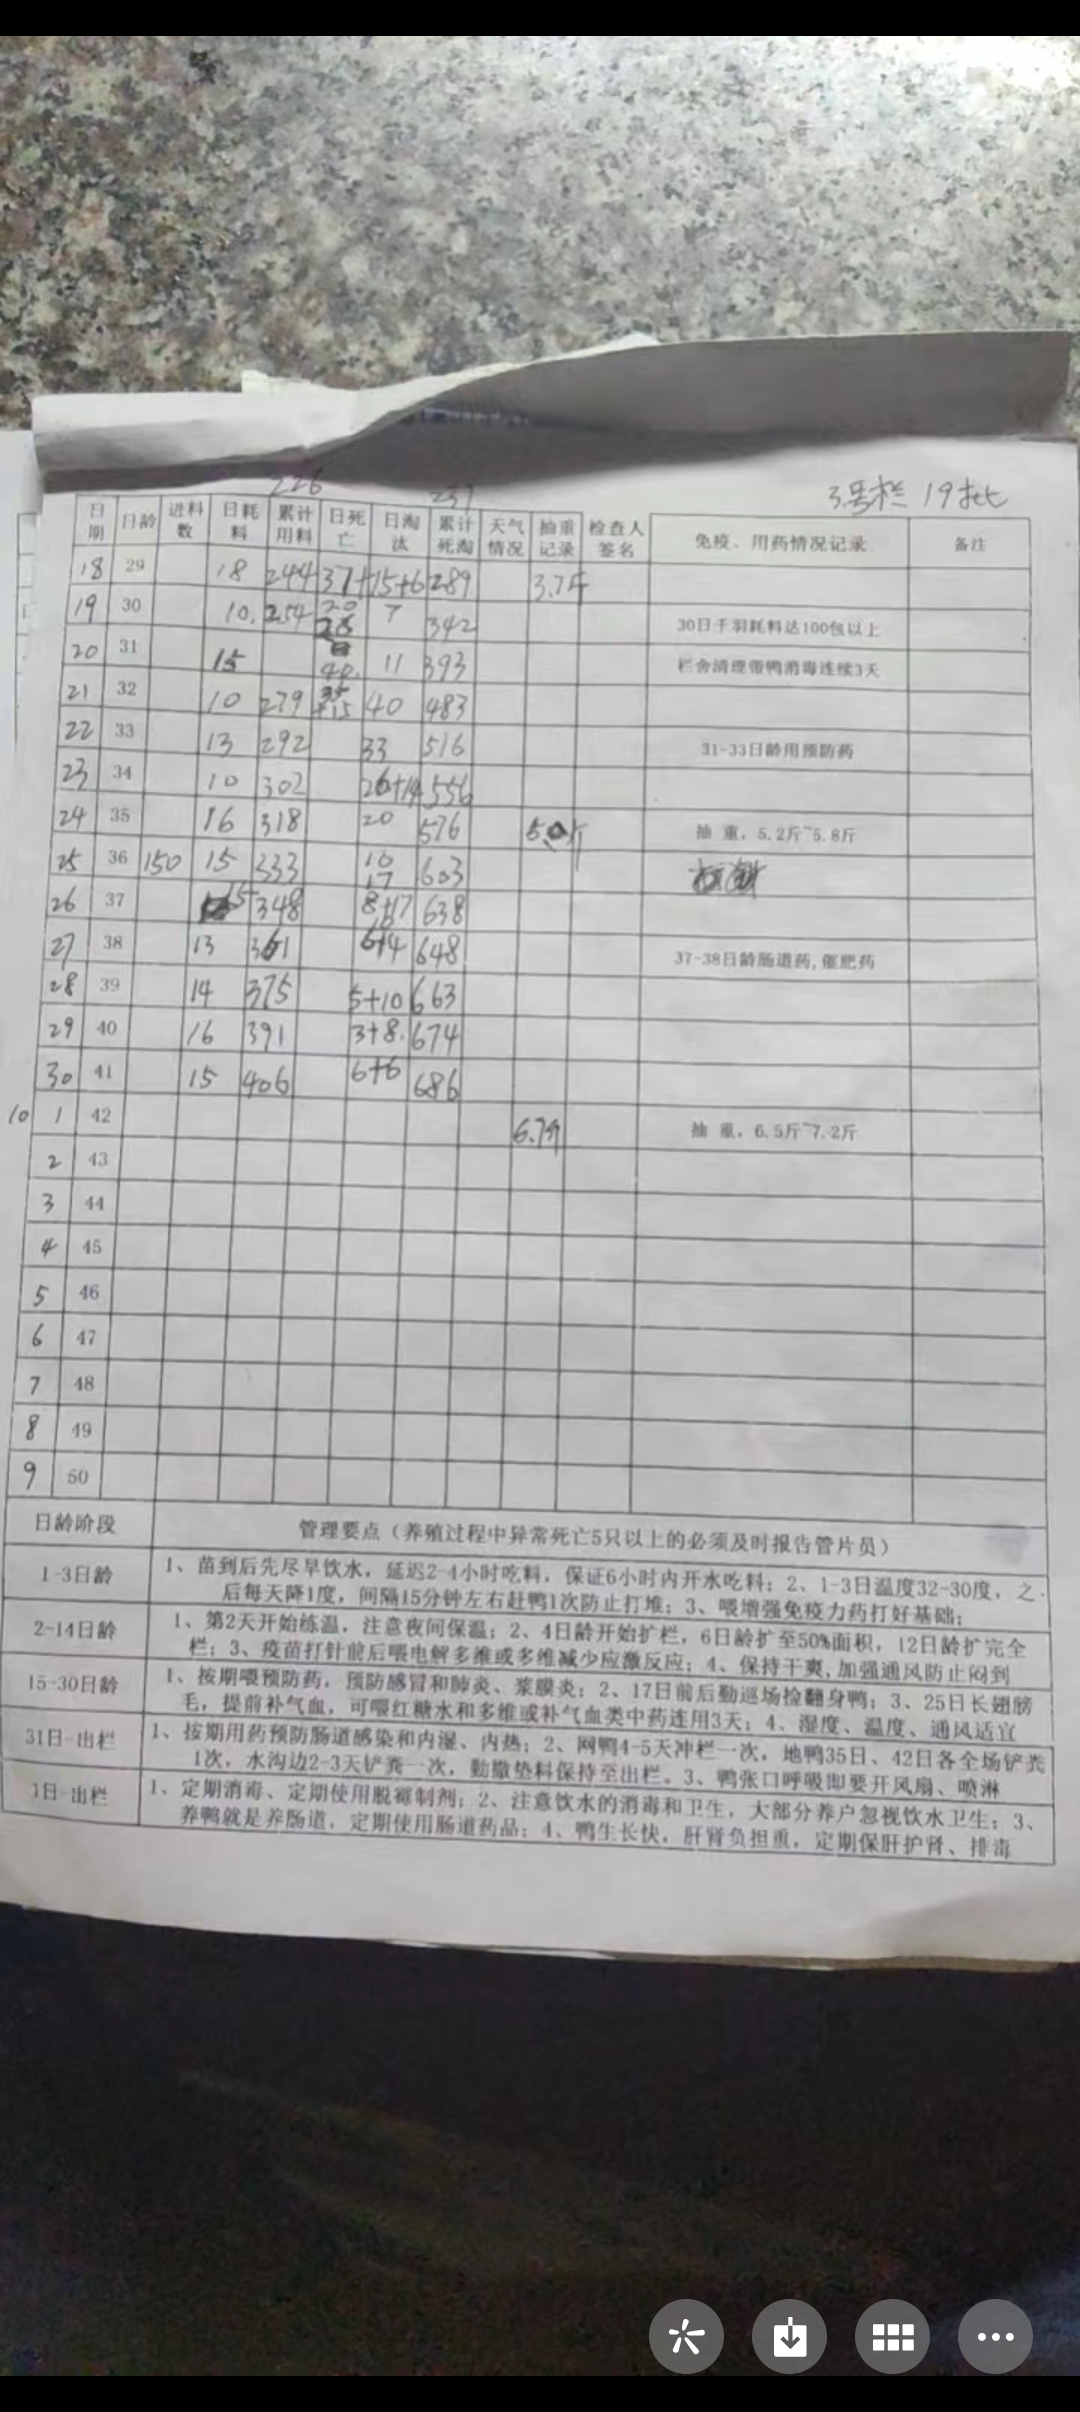 226 237 3号栏 19批
日期 日龄 进料数 日耗料 累计用料 日死亡 日淘汰 累计死淘 天气情况 抽重记录 检查人签名 免疫、用药情况记录 备注
18 29 18 244 37+ 15+6 289 3.7斤
19 30 10. 254 20 28 7 342 30日千羽耗料达100包以上
20 31 15 40. 11 393 栏舍清理带鸭消毒连续3天
21 32 10 279 35 +15 40 483
22 33 13 292 33 516 31-33日龄用预防药
23 34 10 302 26+14 556
24 35 16 318 20 576 抽 重，5.2斤~5.8斤
25 36 150 15 333 10 17 603
26 37 15 348 8+17 638
27 38 13 361 6+4 648 37-38日龄肠道药,催肥药
28 39 14 375 5+10 663
29 40 16 391 3+8. 674
30 41 15 406 6+6 686
10 1 42 6.7斤 抽 重，6.5斤~7.2斤
2 43
3 44
4 45
5 46
6 47
7 48
8 49
9 50
日龄阶段 管理要点（养殖过程中异常死亡5只以上的必须及时报告管片员）
1-3日龄 1、苗到后先尽早饮水，延迟2-4小时吃料，保证6小时内开水吃料；2、1-3日温度32-30度，之
后每天降1度，间隔15分钟左右赶鸭1次防止打堆；3、喂增强免疫力药打好基础；
2-14日龄 1、第2天开始练温，注意夜间保温；2、4日龄开始扩栏，6日龄扩至50%面积，12日龄扩完全
栏；3、疫苗打针前后喂电解多维或多维减少应激反应；4、保持干爽,加强通风防止闷到
15-30日龄 1、按期喂预防药，预防感冒和肺炎、浆膜炎；2、17日前后勤巡场捡翻身鸭；3、25日长翅膀
毛，提前补气血，可喂红糖水和多维或补气血类中药连用3天；4、湿度、温度、通风适宜
31日-出栏 1、按期用药预防肠道感染和内湿、内热；2、网鸭4-5天冲栏一次，地鸭35日、42日各全场铲粪
1次，水沟边2-3天铲粪一次，勤撒垫料保持至出栏。3、鸭张口呼吸即要开风扇、喷淋
1日-出栏 1、定期消毒、定期使用脱霉制剂；2、注意饮水的消毒和卫生，大部分养户忽视饮水卫生；3、
养鸭就是养肠道，定期使用肠道药品；4、鸭生长快，肝肾负担重，定期保肝护肾、排毒